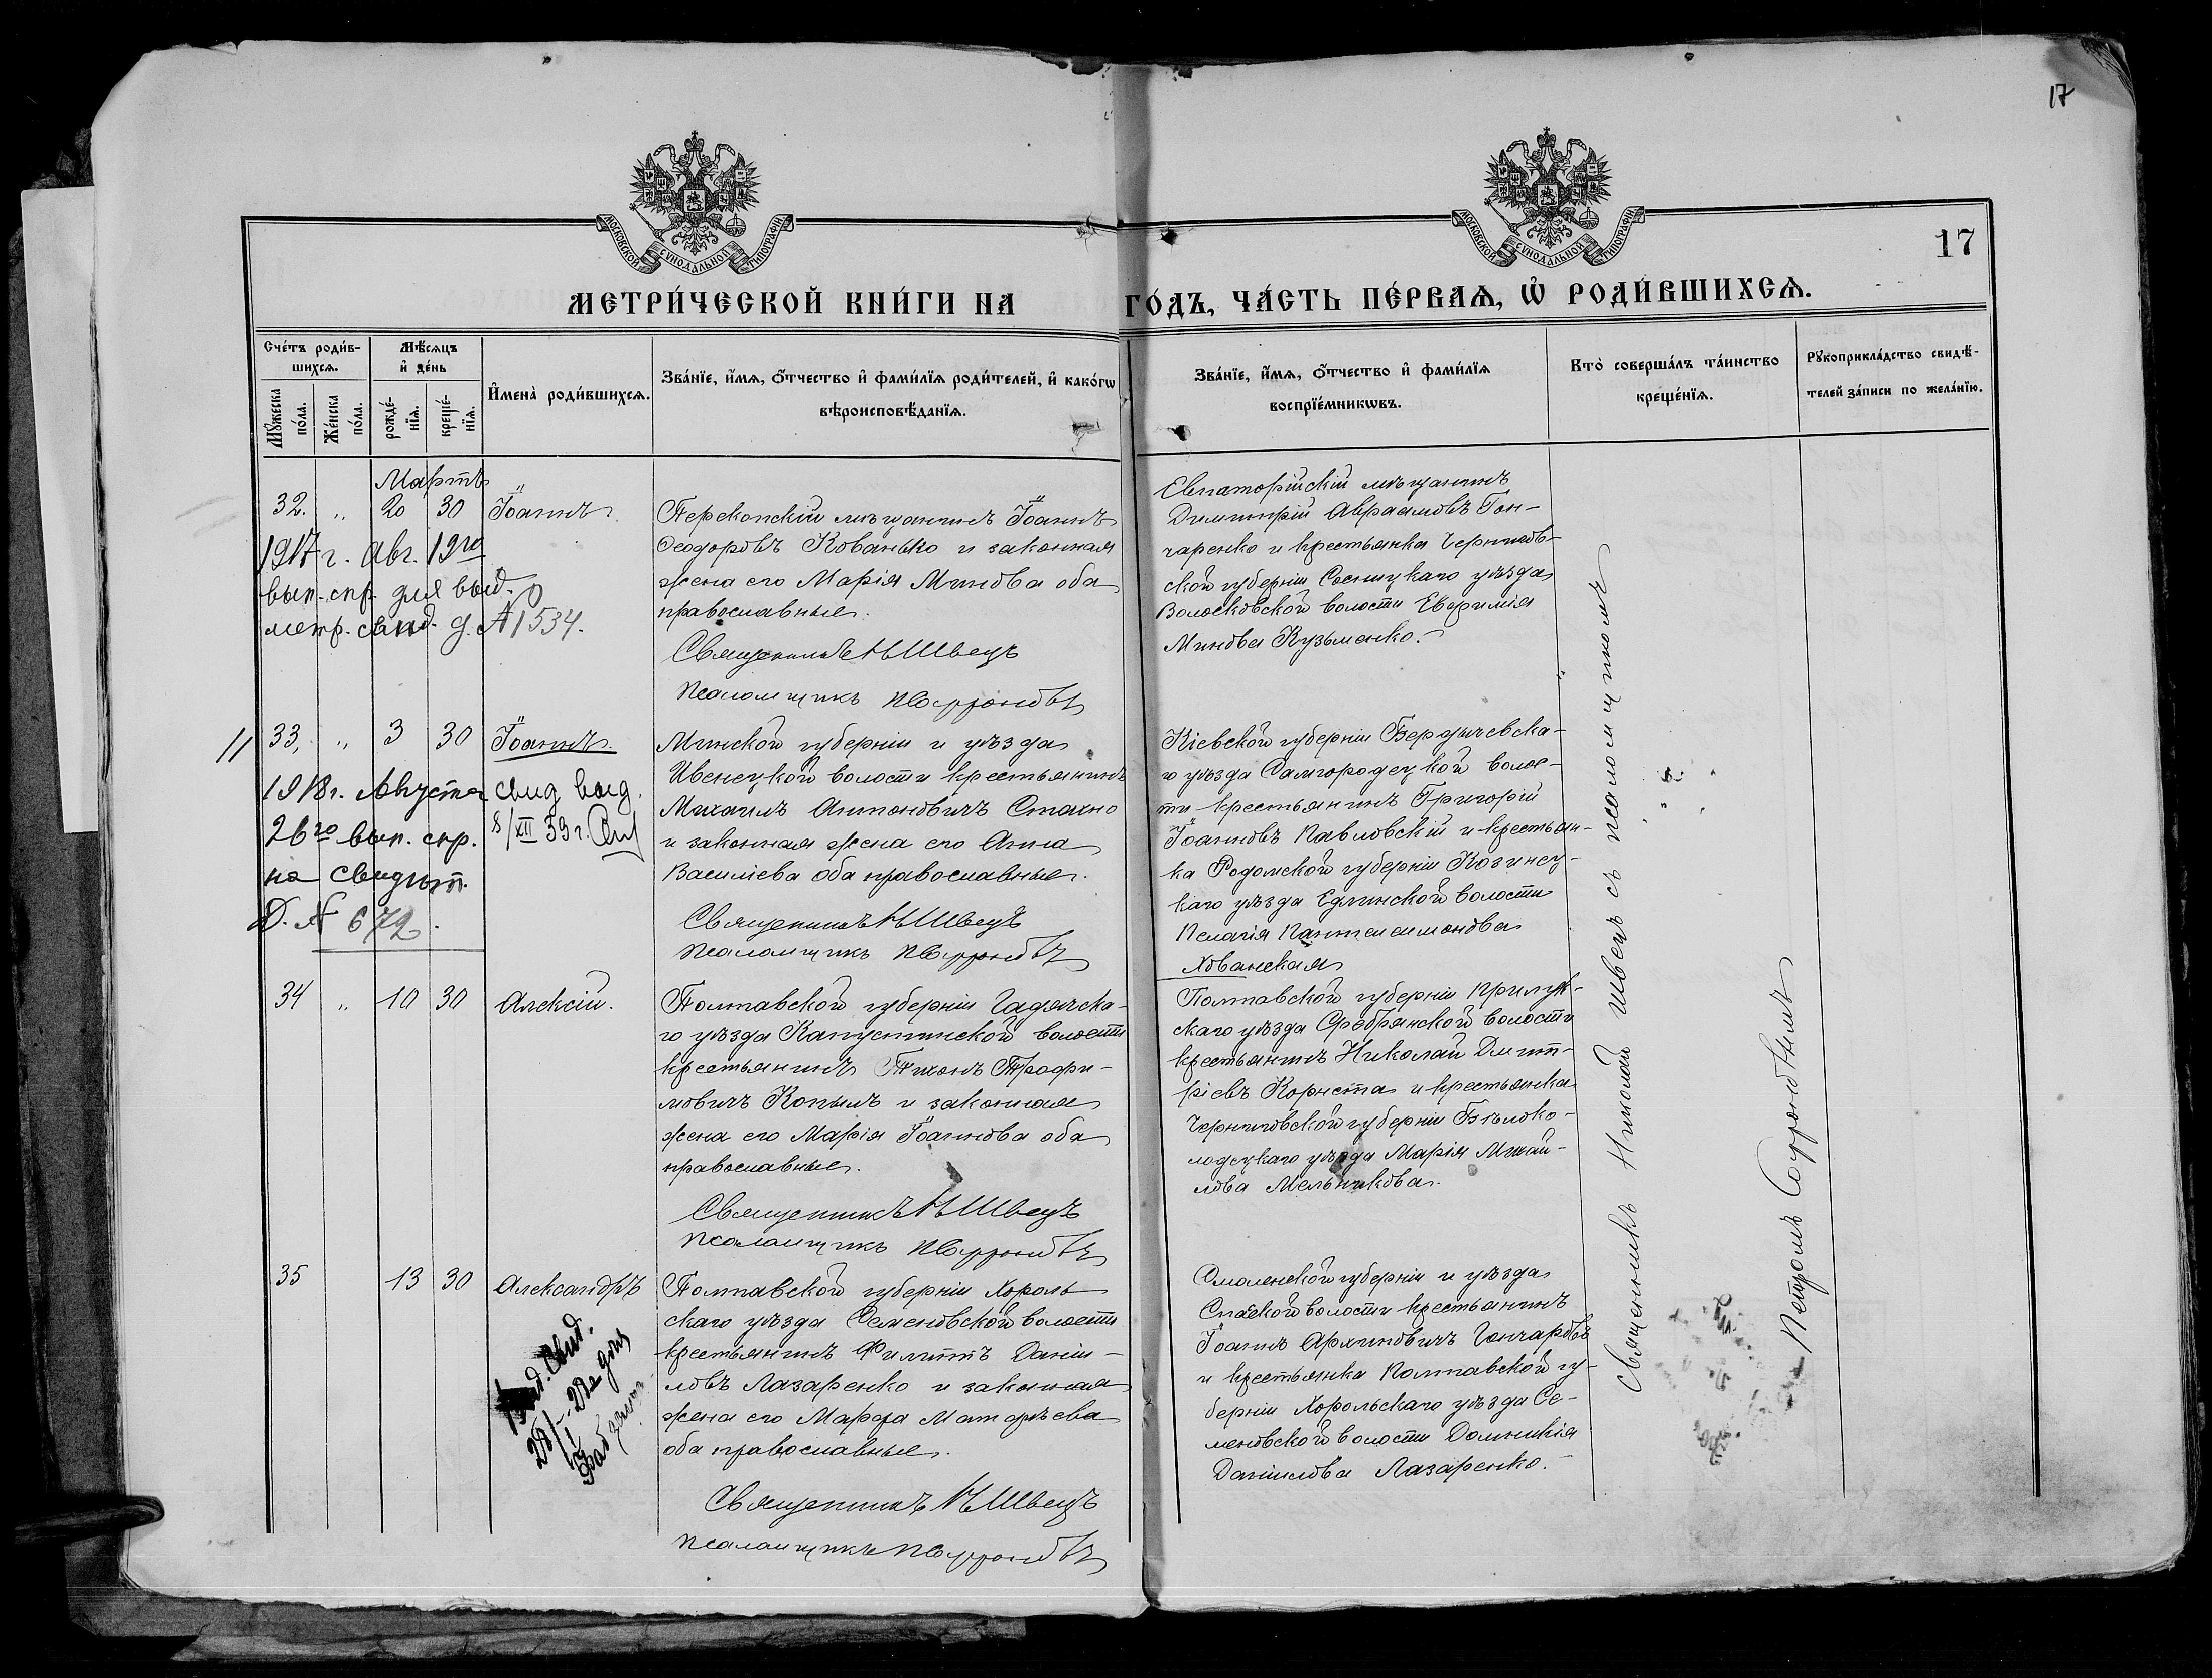 17
МОСКОВСКОЙ СѴНОДАЛЬНОЙ ТИПОГРАФІИ
МОСКОВСКОЙ СѴНОДАЛЬНОЙ ТИПОГРАФІИ
17
МЕТРИ́ЧЕСКОЙ КНИ́ГИ НА ГО́ДЪ, ЧА́СТЬ ПЕ́РВАѦ, Ѡ҆ РОДИ́ВШИХСѦ.
Счётъ роди́в-
шихсѧ.
Мꙋжеска по́ла.
Же́нска по́ла.
Мѣ́сѧцъ
и҆ де́нь
рожде́-
нїѧ.
креще́-
нїѧ.
И҆мена̀ роди́вшихсѧ.
Зва́нїе, и҆́мѧ, ѻ҆́тчество и҆ фами́лїѧ роди́телей, и҆ како́гѡ
вѣроисповѣ́данїѧ.
Зва́нїе, и҆́мѧ, ѻ҆́тчество и҆ фами́лїѧ
воспрїе́мникѡвъ.
Кто̀ соверша́лъ та́инство
креще́нїѧ.
Рꙋкоприкла́дство свидѣ́-
телей за́писи по жела́нїю.
Мартъ
32. " 20 30 Іоаннъ.
1917 г. Авг. 19го
вып. спр. для выд.
метр. свид. д. № 1534.
Перекопскій мѣщанинъ Іоаннъ
Ѳеодоровъ Кованько и законная
жена его Марія Минова оба
православные.
Священникъ Н Швецъ
Псаломщикъ П Софроновъ
Евпаторійскій мѣщанинъ
Димитрій Авраамовъ Гон-
чаренко и крестьянка Чернигов-
ской губерніи Сосницкаго уѣзда
Волосковской волости Евфимія
Минова Кузьменко.
33, " 3 30 Іоаннъ.
1918 г. Августа
26го вып. спр.
на свидѣт.
Д. № 672.
свид выд.
8/XII 39 г.
Минской губерніи и уѣзда
Ивенецкой волости крестьянинъ
Михаилъ Антоновичъ Стахно
и законная жена его Анна
Василіева оба православные.
Священникъ Н Швецъ
Псаломщикъ П Софроновъ
Кіевской губерніи Бердычевска-
го уѣзда Самгородецкой волос-
ти крестьянинъ Григорій
Іоанновъ Павловскій и крестьян-
ка Родомской губерніи Козинец-
каго уѣзда Едлинской волости
Пелагія Пантелеимонова
Хованская
34 " 10 30 Алексій.
Полтавской губерніи Гадячска-
го уѣзда Капустинской волости
крестьянинъ Тихонъ Трофи-
мовичъ Копылъ и законная
жена его Марія Іоаннова оба
православные.
Священникъ Н Швецъ
Псаломщикъ П Софроновъ
Полтавской губерніи Прилук-
скаго уѣзда Сребрянской волости
крестьянинъ Николай Димит-
ріевъ Корнета и крестьянка
Черниговской губерніи Бѣлоко-
лодецкаго уѣзда Марія Михай-
лова Мельникова.
35 13 30 Александръ
Выд. Свид.
Полтавской губерніи Хороль
скаго уѣзда Семеновской волости
крестьянинъ Филиппъ Даніи-
ловъ Лазаренко и законная
жена его Марфа Матфѣева
оба православные.
Священникъ Н Швецъ
Псаломщикъ П Софроновъ
Смоленской губерніи и уѣзда
Спаской волости крестьянинъ
Іоаннъ Архиповичъ Гончаровъ
и крестьянка Полтавской гу-
берніи Хорольскаго уѣзда Се-
меновской волости Домникія
Даніилова Лазаренко.
Священникъ Николай Швецъ съ псаломщикомъ
Петромъ Софроновымъ